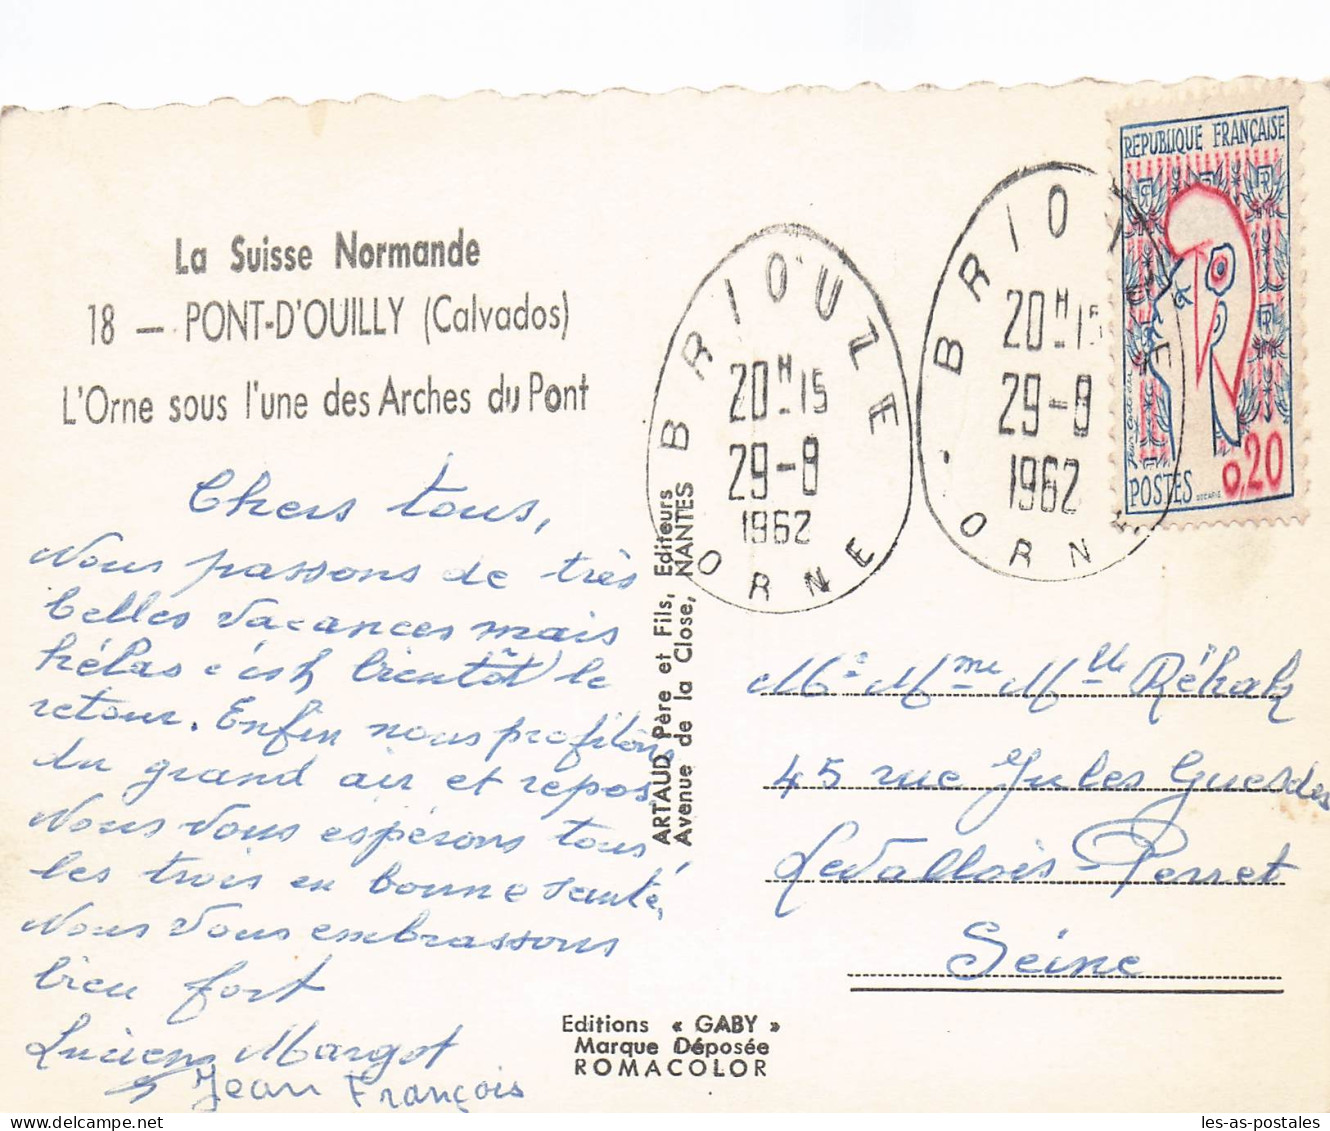 La Suisse Normande
18 — PONT-D'OUILLY (Calvados)
L'Orne sous l'une des Arches du Pont
Chers tous,
Nous passons de très
belles vacances mais
hélas c'est bientôt le
retour. Enfin nous profitons
du grand air et repos
Nous vous espérons tous
les trois en bonne santé.
Nous vous embrassons
bien fort
Lucien Margot
Jean François
ARTAUD Père et Fils, Editeurs
Avenue de la Close, NANTES
Editions « GABY »
Marque Déposée
ROMACOLOR
BRIOUZE
20H15
29-8
1962
ORNE
BRIOUZE
20H15
29-8
1962
ORNE
REPUBLIQUE FRANÇAISE
0,20
POSTES
DECARIS
Mr Mme Mlle
45 rue Jules Guesdes
Levallois-Perret
Seine
les-as-postales